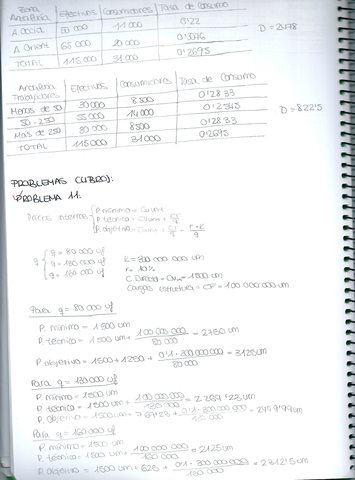 Zona Efectivos Consumidores Tasa de Consumo
A. Occid 50 000 11 000 0'22
A. Orient 65 000 20 000 0'3076
TOTAL 115 000 31 000 0'2695
D = 2478
Trabajadores Efectivos Consumidores Tasa de Consumo
Menos de 50 30 000 8 500 0'28 33
50 - 250 55 000 14 000 0'2545
Más de 250 30 000 8500 0'28 33
TOTAL 115 000 31 000 0'2695
D = 8225
PROBLEMAS (LIBRO):
PROBLEMA 11:
Precios internos
P. mínimo = Cvunit
P. técnico = Cvunit + CF/q
P. objetivo = Cvunit + CF/q + r·K/q
q = 80 000 uf
q = 130 000 uf
q = 160 000 uf
K = 300 000 000 um
r = 10%
C. Directo = Cvu = 1500 um
Cargas estructura = CF = 100 000 000 um
Para q = 80 000 uf
P. mínimo = 1 500 um
P. técnico = 1 500 um + 100 000 000/80 000 = 2750 um
P. objetivo = 1500 + 1250 + 0'1 · 300 000 000/80 000 = 3125 um
Para q = 130 000 uf
P. mínimo = 1500 um
P. técnico = 1 500 um + 100 000 000/130 000 = 2 269'23 um
P. objetivo = 1500 um + 769'23 + 0'1 · 300 000 000/130 000 = 2499'99 um
Para q = 160 000 uf
P. mínimo = 1500 um
P. técnico = 1 500 um + 100 000 000/160 000 = 2125 um
P. objetivo = 1500 um + 625 + 0'1 · 300 000 000/160 000 = 2312'5 um